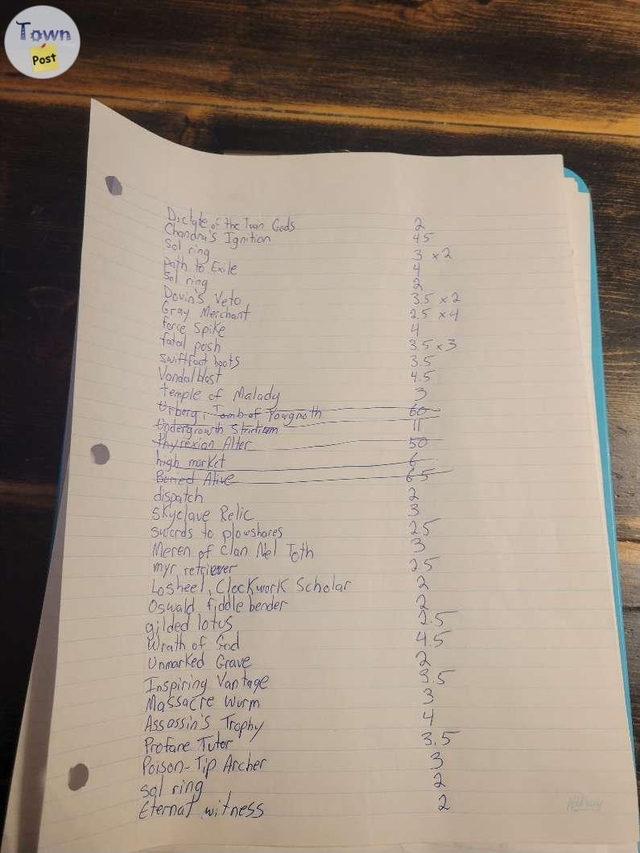 Town
Post
Dictate of the Twin Gods 2
Chandra's Ignition 4.5
Sol ring 3 x2
path to Exile 4
Sol ring 2
Dovin's Veto 3.5 x2
Gray Merchant 2.5 x4
force Spike 4
fatal push 3.5 x3
swiftfoot boots 3.5
Vandalblast 4.5
temple of Malady 3
Urborg, Tomb of Yawgmoth 60
Undergrowth Stadium 11
Phyrexian Alter 50
high market 6
Buried Alive 6.5
dispatch 2
Skyclave Relic 3
swords to plowshares 2.5
Meren of Clan Nel Toth 3
myr retriever 2.5
Losheel, Clockwork Scholar 2
Oswald fiddlebender 2
gilded lotus 2.5
Wrath of God 4.5
Unmarked Grave 2
Inspiring Vantage 3.5
Massacre Wurm 3
Assassin's Trophy 4
Profane Tutor 3.5
Poison-Tip Archer 3
sol ring 2
Eternal witness 2